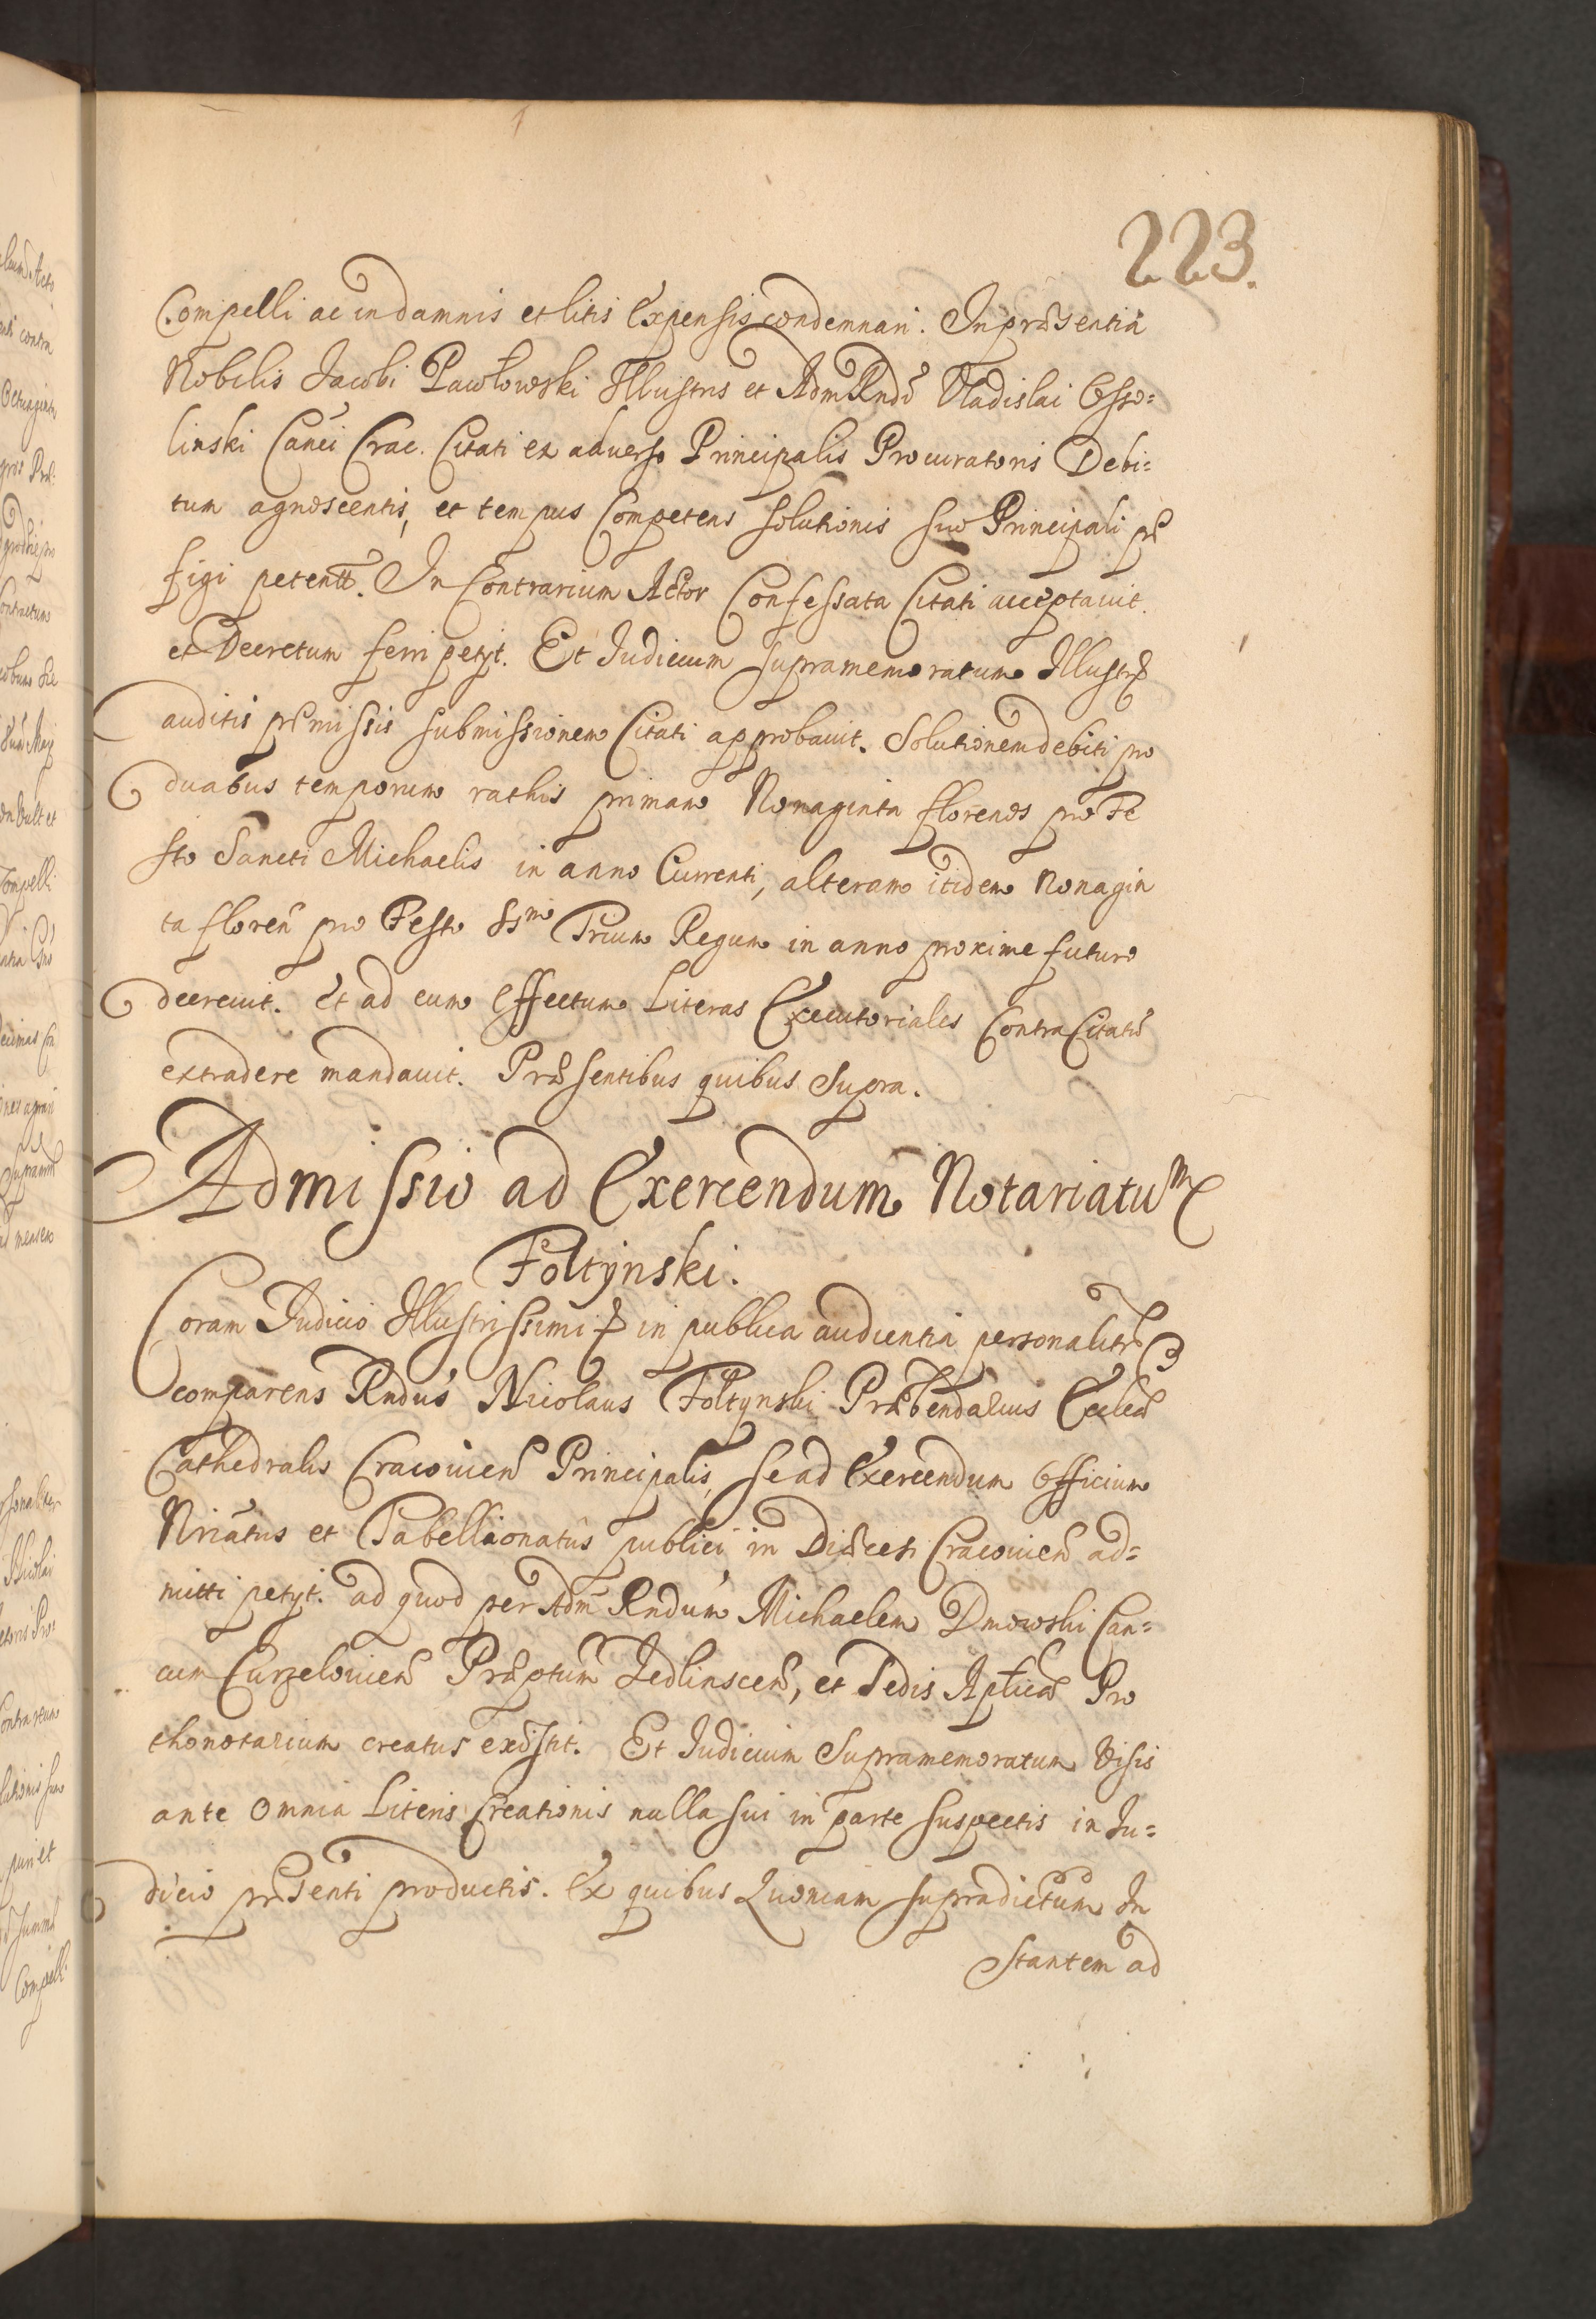 223.
Compelli ac in damnis et litis Expensis condemnari. In præsentia
Nobilis Jacobi Pawłowski Illustris et Adm Rndi Vladislai Osso=
linski Canci Crac. Citati ex adverso Principalis Procuratoris Debi=
tum agnoscentis, et tempus Competens solutionis suo Principali præ
figi petentt. In Contrarium Actor Confessata Citati acceptavit
et Decretum ferri petyt. Et Judicium supramemoratum Illustr
auditis præmissis submissionem Citati approbavit. Solutionem debiti pro
duabus temporum rathis primam Nonaginta florenos pro Fe
sto Sancti Michaelis in anno Currenti, alteram itidem Nonagin
ta floren pro Festo SSmo Trium Regum in anno proxime futuro
decrevit. Et ad eum Effectum Literas Executoriales Contra Citatū
extradere mandavit. Præsentibus quibus Supra.
Admissio ad Exercendum Notariatum
Foltynski.
Coram Judicio Illustrissimi in publica audientia personalitr
comparens Rndus Nicolaus Foltynski Præbendarius Ecclæ
Cathedralis Cracovien Principalis, se ad Exercendum Officium
Nriatus et Tabellionatus publici in Diæcesi Cracovien ad=
mitti petyt. ad quod per Adm Rndum Michaelem Dmowski Can=
cum Curzelovien Præptum Jedlinscen, et Sedis Aplicæ Pro
thonotarium creatus existit. Et Judicium Supramemoratum Visis
ante omnia Literis Creationis nulla sui in parte suspectis in Ju=
dicio præsenti productis. Ex quibus Quoniam supradictum In
Stantem ad